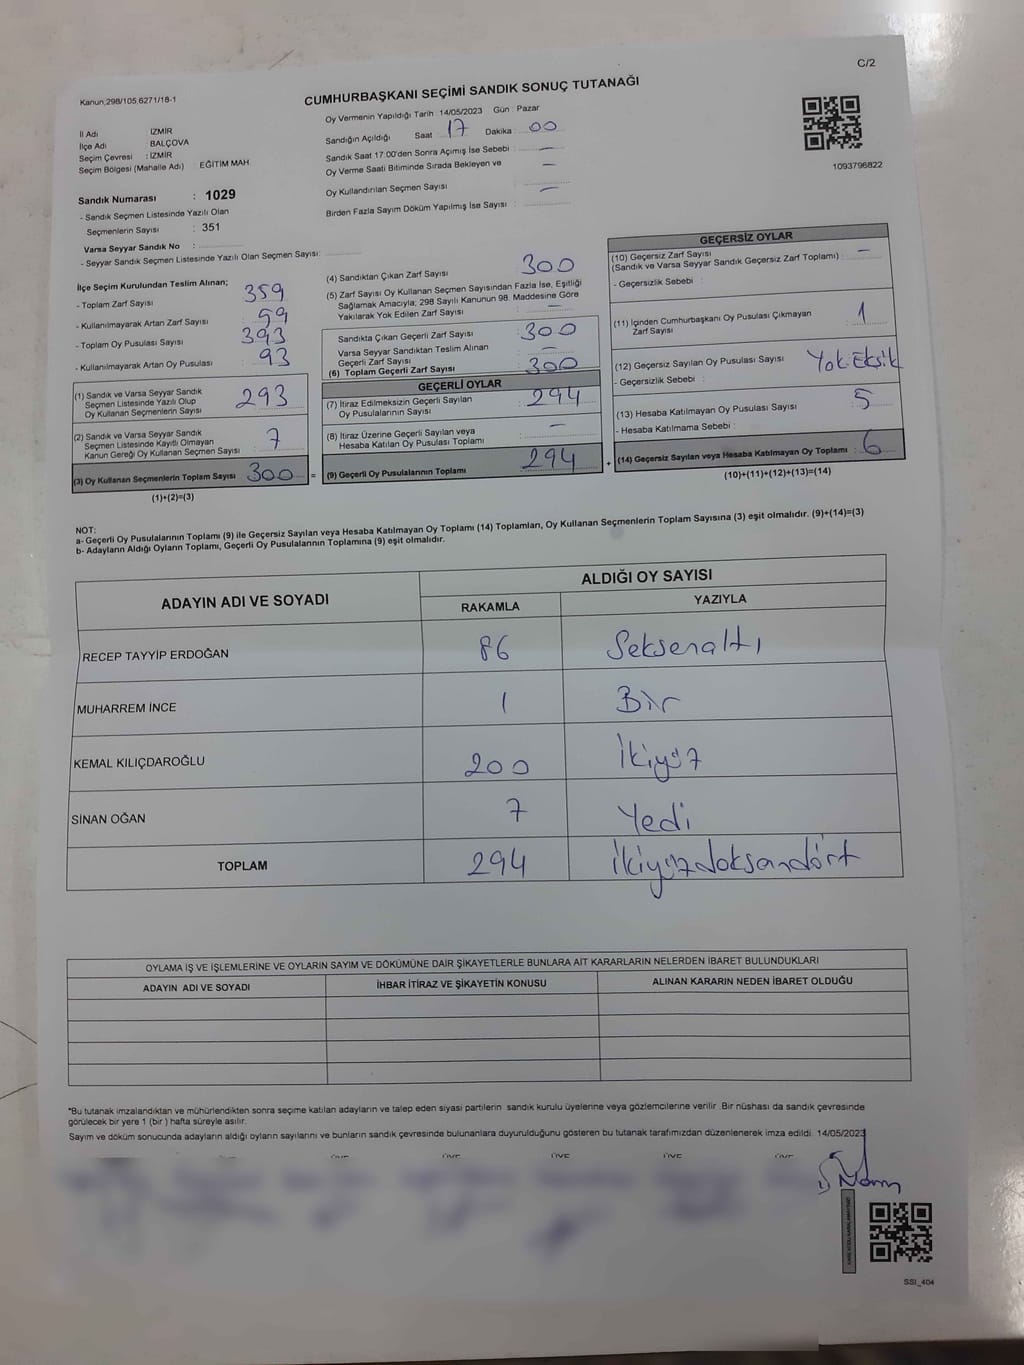 C/2
Kanun,298/105,6271/18-1
CUMHURBAŞKANI SEÇİMİ SANDIK SONUÇ TUTANAĞI
Oy Vermenin Yapıldığı Tarih : 14/05/2023 Gün : Pazar
İl Adı : İZMİR
İlçe Adı : BALÇOVA
Seçim Çevresi : İZMİR
Seçim Bölgesi (Mahalle Adı) EĞİTİM MAH.
Sandığın Açıldığı Saat : 17 Dakika : 00
Sandık Saat 17:00'den Sonra Açımış İse Sebebi : —
Oy Verme Saati Bitiminde Sırada Bekleyen ve —
Oy Kullandırılan Seçmen Sayısı : —
Birden Fazla Sayım Döküm Yapılmış İse Sayısı :
1093796822
Sandık Numarası : 1029
- Sandık Seçmen Listesinde Yazılı Olan
Seçmenlerin Sayısı : 351
Varsa Seyyar Sandık No :
- Seyyar Sandık Seçmen Listesinde Yazılı Olan Seçmen Sayısı:
İlçe Seçim Kurulundan Teslim Alınan;
- Toplam Zarf Sayısı : 359
- Kullanılmayarak Artan Zarf Sayısı : 59
- Toplam Oy Pusulası Sayısı : 393
- Kullanılmayarak Artan Oy Pusulası : 93
(1) Sandık ve Varsa Seyyar Sandık
Seçmen Listesinde Yazılı Olup
Oy Kullanan Seçmenlerin Sayısı : 293
(2) Sandık ve Varsa Seyyar Sandık
Seçmen Listesinde Kayıtlı Olmayan
Kanun Gereği Oy Kullanan Seçmen Sayısı : 7
(3) Oy Kullanan Seçmenlerin Toplam Sayısı : 300 =
(1)+(2)=(3)
(4) Sandıktan Çıkan Zarf Sayısı : 300
(5) Zarf Sayısı Oy Kullanan Seçmen Sayısından Fazla İse, Eşitliği
Sağlamak Amacıyla; 298 Sayılı Kanunun 98. Maddesine Göre
Yakılarak Yok Edilen Zarf Sayısı : —
Sandıkta Çıkan Geçerli Zarf Sayısı : 300
Varsa Seyyar Sandıktan Teslim Alınan
Geçerli Zarf Sayısı : —
(6) Toplam Geçerli Zarf Sayısı : 300
GEÇERLİ OYLAR
(7) İtiraz Edilmeksizin Geçerli Sayılan
Oy Pusulalarının Sayısı : 294
(8) İtiraz Üzerine Geçerli Sayılan veya
Hesaba Katılan Oy Pusulası Toplamı : —
(9) Geçerli Oy Pusulalarının Toplamı : 294 +
GEÇERSİZ OYLAR
(10) Geçersiz Zarf Sayısı
(Sandık ve Varsa Seyyar Sandık Geçersiz Zarf Toplamı) : —
- Geçersizlik Sebebi :
(11) İçinden Cumhurbaşkanı Oy Pusulası Çıkmayan
Zarf Sayısı : 1
(12) Geçersiz Sayılan Oy Pusulası Sayısı : Yok-Eksik
- Geçersizlik Sebebi :
(13) Hesaba Katılmayan Oy Pusulası Sayısı : 5
- Hesaba Katılmama Sebebi :
(14) Geçersiz Sayılan veya Hesaba Katılmayan Oy Toplamı : 6
(10)+(11)+(12)+(13)=(14)
NOT:
a- Geçerli Oy Pusulalarının Toplamı (9) ile Geçersiz Sayılan veya Hesaba Katılmayan Oy Toplamı (14) Toplamları, Oy Kullanan Seçmenlerin Toplam Sayısına (3) eşit olmalıdır. (9)+(14)=(3)
b- Adayların Aldığı Oyların Toplamı, Geçerli Oy Pusulalarının Toplamına (9) eşit olmalıdır.
ADAYIN ADI VE SOYADI ALDIĞI OY SAYISI
RAKAMLA YAZIYLA
RECEP TAYYİP ERDOĞAN 86 Seksenaltı
MUHARREM İNCE 1 Bir
KEMAL KILIÇDAROĞLU 200 İkiyüz
SİNAN OĞAN 7 Yedi
TOPLAM 294 İkiyüzdoksandört
OYLAMA İŞ VE İŞLEMLERİNE VE OYLARIN SAYIM VE DÖKÜMÜNE DAİR ŞİKAYETLERLE BUNLARA AİT KARARLARIN NELERDEN İBARET BULUNDUKLARI
ADAYIN ADI VE SOYADI İHBAR İTİRAZ VE ŞİKAYETİN KONUSU ALINAN KARARIN NEDEN İBARET OLDUĞU
*Bu tutanak imzalandıktan ve mühürlendikten sonra seçime katılan adayların ve talep eden siyasi partilerin sandık kurulu üyelerine veya gözlemcilerine verilir. Bir nüshası da sandık çevresinde
görülecek bir yere 1 (bir) hafta süreyle asılır.
Sayım ve döküm sonucunda adayların aldığı oyların sayılarını ve bunların sandık çevresinde bulunanlara duyurulduğunu gösteren bu tutanak tarafımızdan düzenlenerek imza edildi. 14/05/2023
ÜYE ÜYE ÜYE ÜYE ÜYE
SSI_404